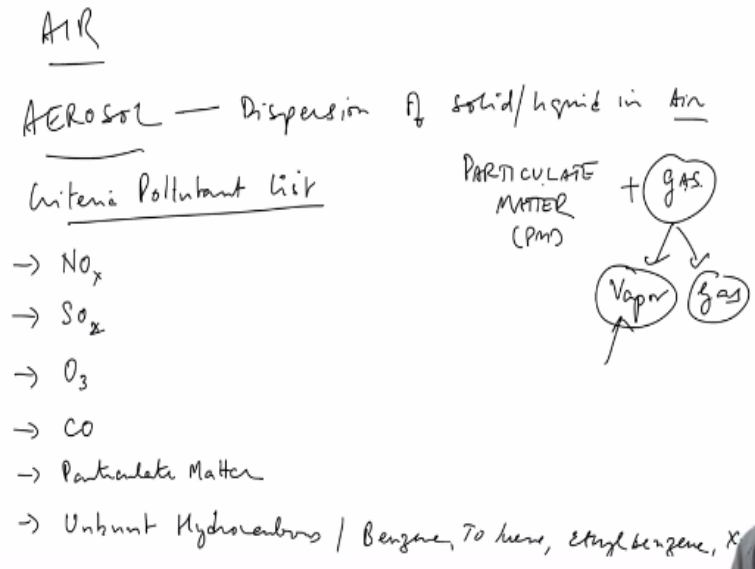 AIR
AEROSOL — Dispersion of solid/liquid in Air
Criteria Pollutant List
PARTICULATE MATTER (PM) + GAS
Vapor Gas
→ NOx
→ SOx
→ O3
→ CO
→ Particulate Matter
→ Unburnt Hydrocarbons / Benzene, Toluene, Ethylbenzene, X